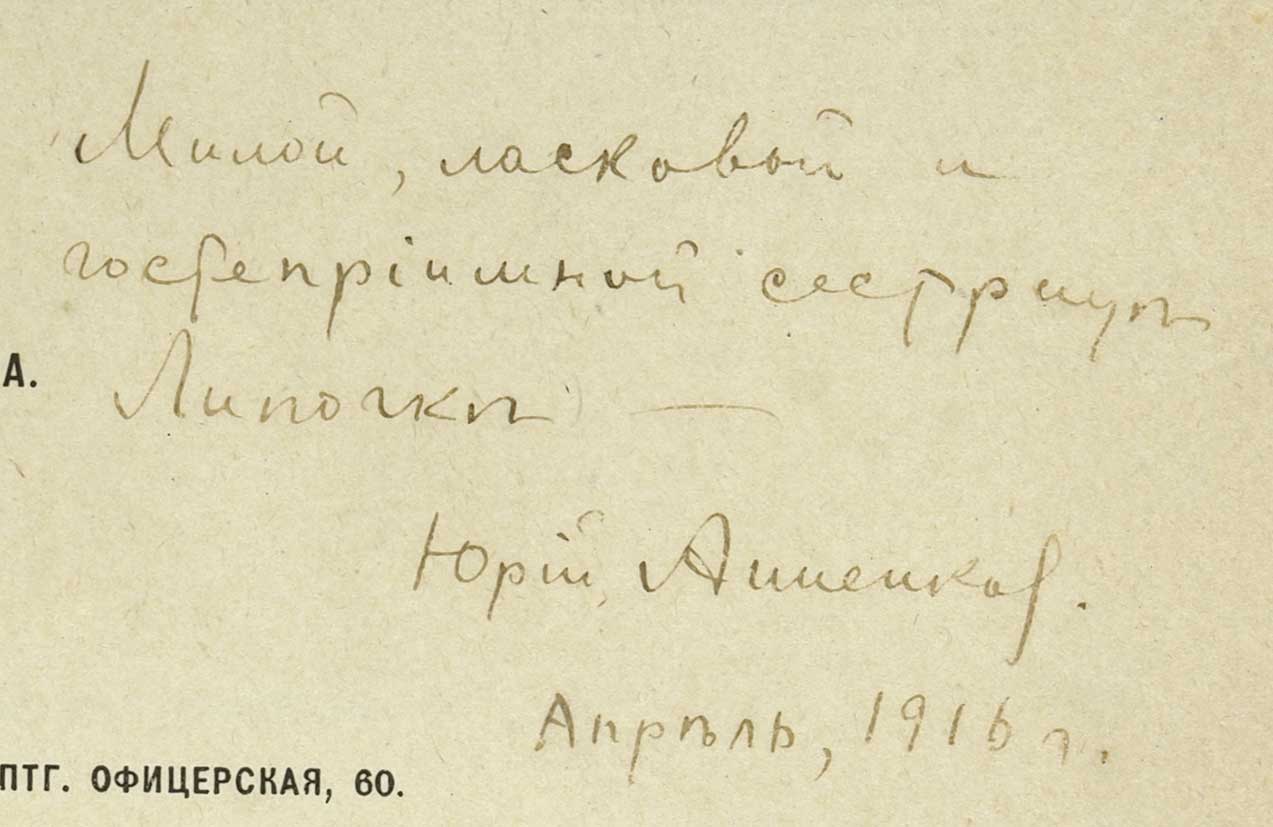 Милой, ласковой и
гостепріимной сестрицѣ
А.
Липочкѣ —
Юрій Анненков.
Апрѣль, 1916 г.
ПТГ. ОФИЦЕРСКАЯ, 60.